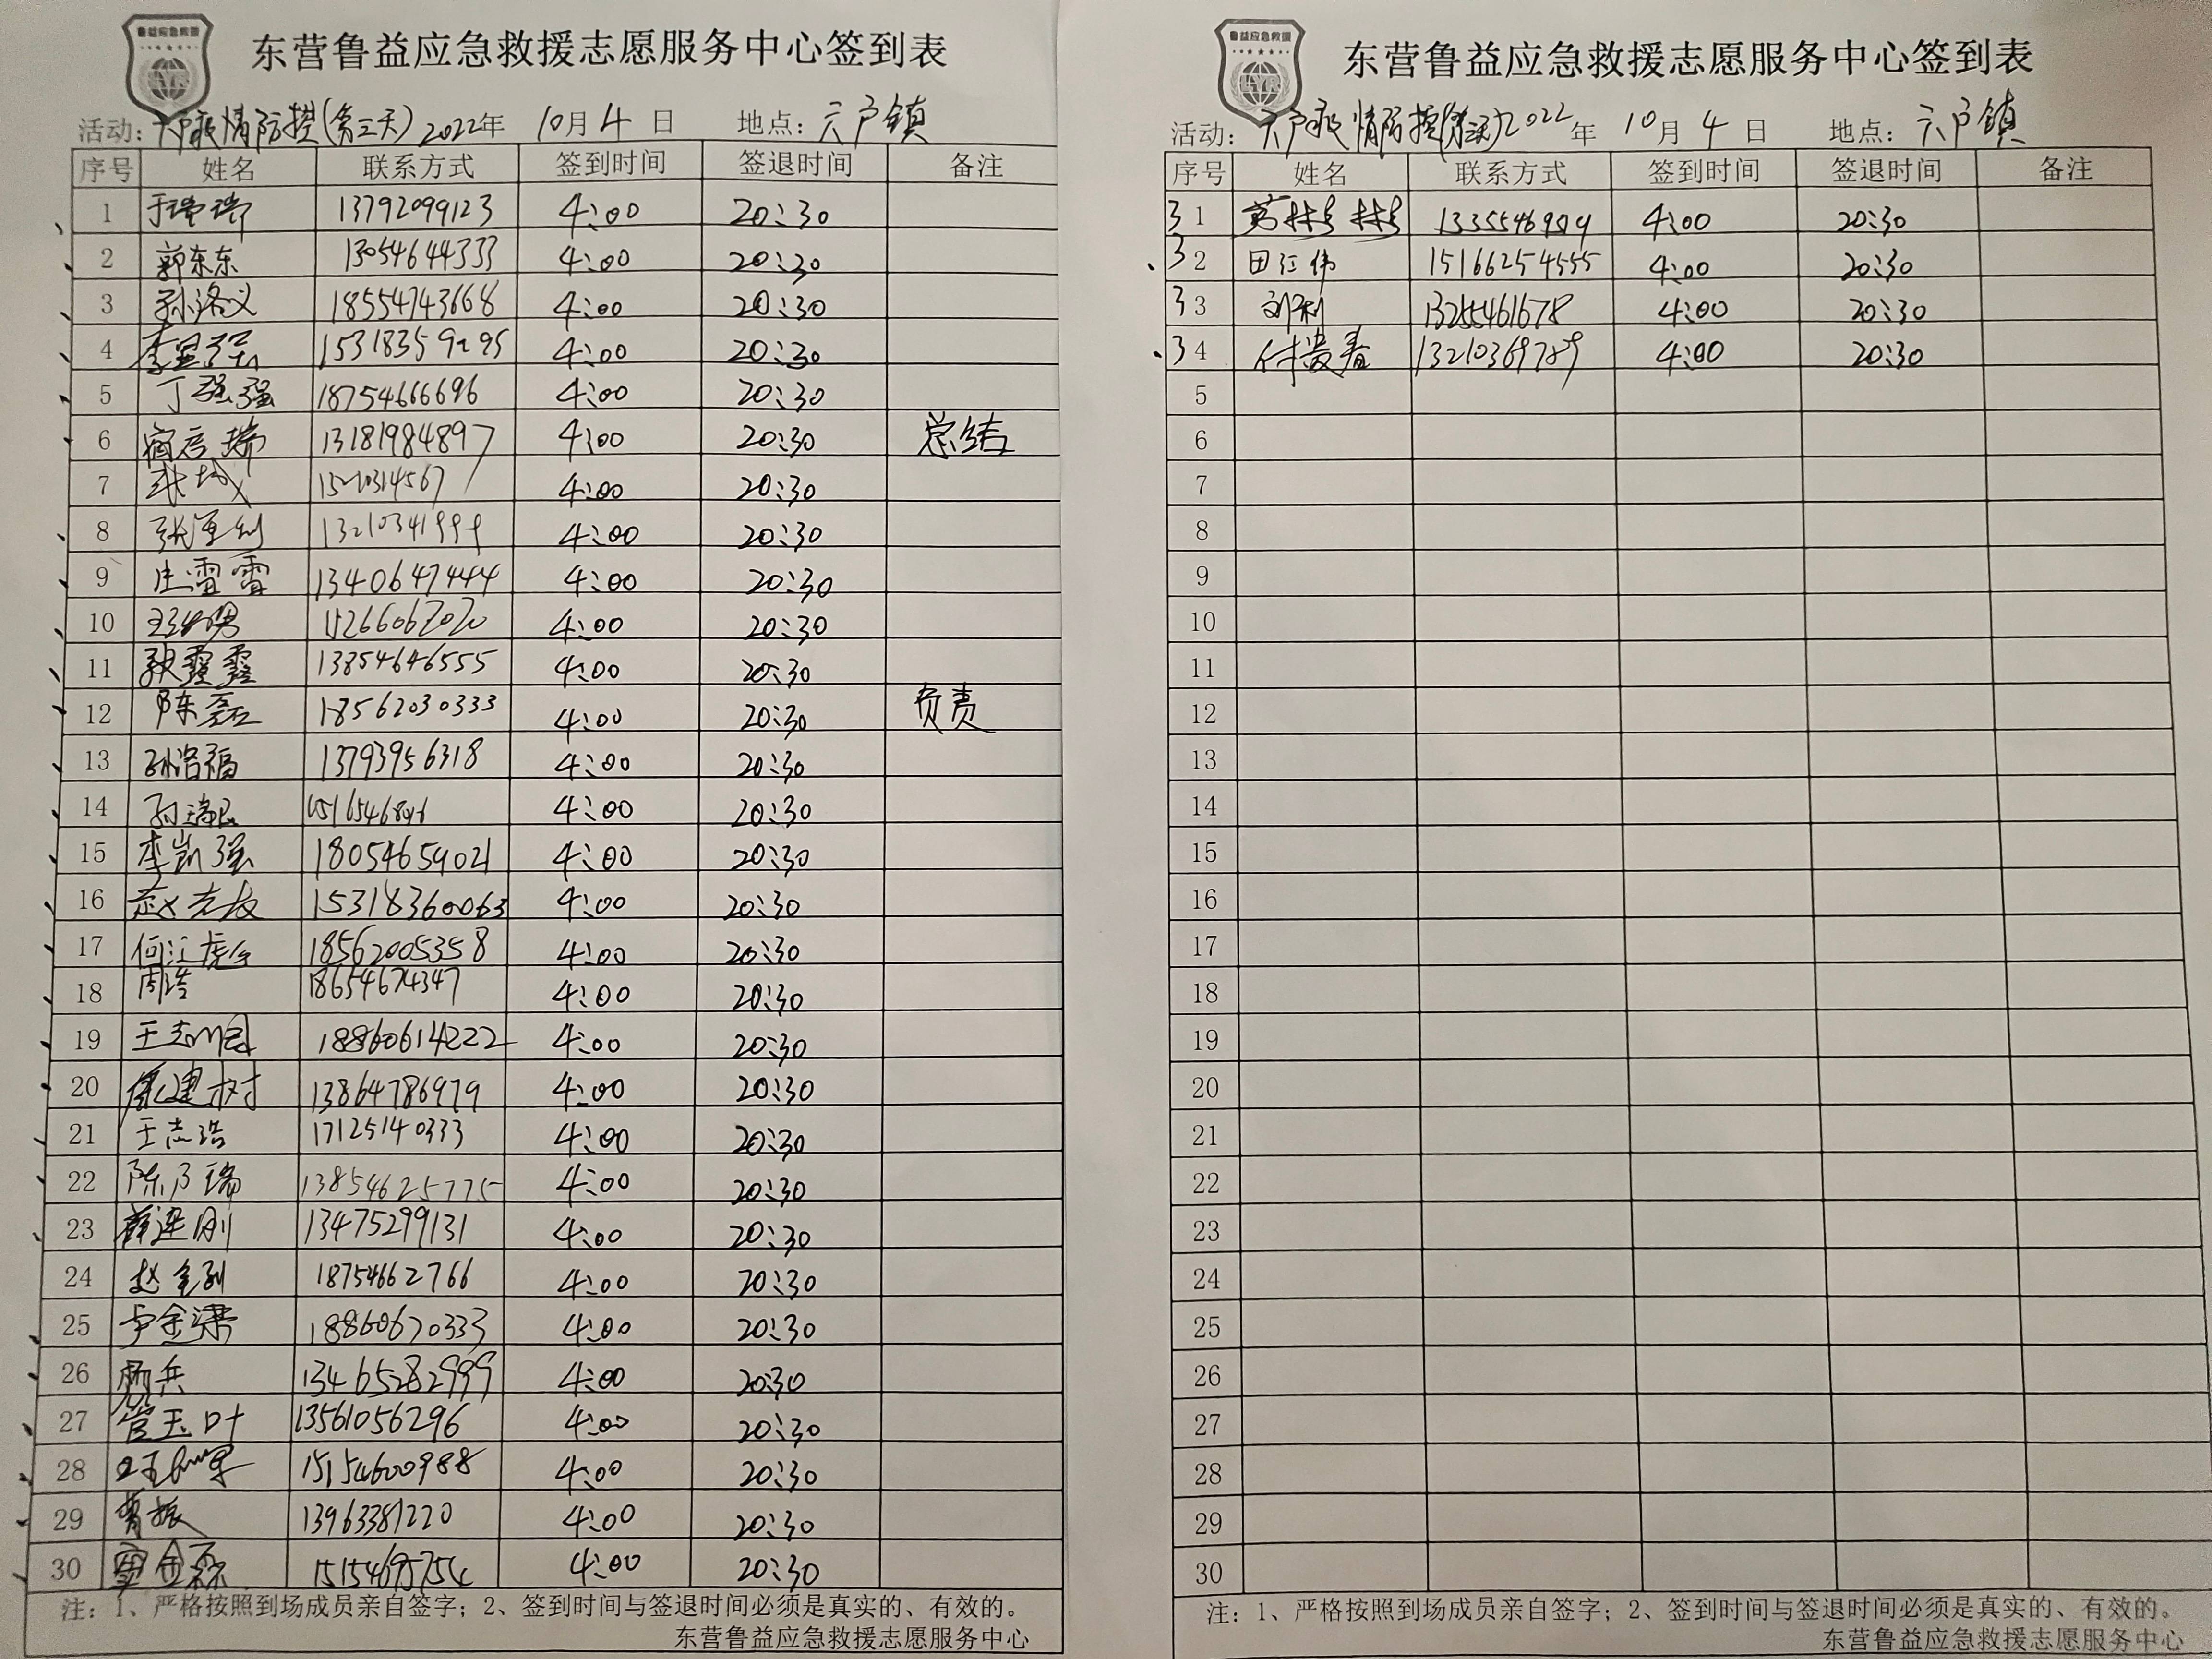 鲁益应急救援
东营鲁益应急救援志愿服务中心签到表
活动：六户疫情防控(第三天) 2022年 10月 4 日 地点：六户镇
序号 姓名 联系方式 签到时间 签退时间 备注
1 于瑞瑞 13792099123 4:00 20:30
2 郭东东 13054644333 4:00 20:30
3 孙洛义 18554743668 4:00 20:30
4 李显强 15318359295 4:00 20:30
5 丁强强 18754666696 4:00 20:30
6 宿彦瑞 13181984897 4:00 20:30 总结
7 4:00 20:30
8 张军利 13210341999 4:00 20:30
9 庄雷雷 13406474444 4:00 20:30
10 15266067070 4:00 20:30
11 耿鑫鑫 13854646555 4:00 20:30
12 陈磊 18562030333 4:00 20:30 负责
13 孙洛福 13793956318 4:00 20:30
14 孙瑞民 4:00 20:30
15 李凯强 18054654021 4:00 20:30
16 赵光友 15318360063 4:00 20:30
17 何江虎 18562005358 4:00 20:30
18 周浩 18654674347 4:00 20:30
19 王志刚 18860614222 4:00 20:30
20 建树 13864786979 4:00 20:30
21 王志浩 17125140333 4:00 20:30
22 陈乃瑞 13854625775 4:00 20:30
23 薛连刚 13475299131 4:00 20:30
24 赵金利 18754662766 4:00 20:30
25 卢金满 18860670333 4:00 20:30
26 杨兵 13465282999 4:00 20:30
27 管玉叶 13561056296 4:00 20:30
28 15154600988 4:00 20:30
29 曹振 13963381220 4:00 20:30
30 窦金磊 15154695754 4:00 20:30
注：1、严格按照到场成员亲自签字；2、签到时间与签退时间必须是真实的、有效的。
东营鲁益应急救援志愿服务中心
鲁益应急救援
东营鲁益应急救援志愿服务中心签到表
活动：六户疫情防控 2022 年 10月 4 日 地点：六户镇
序号 姓名 联系方式 签到时间 签退时间 备注
31 4:00 20:30
32 田江伟 15166254555 4:00 20:30
33 刘利 13255461678 4:00 20:30
34 付贵春 13210369789 4:00 20:30
5
6
7
8
9
10
11
12
13
14
15
16
17
18
19
20
21
22
23
24
25
26
27
28
29
30
注：1、严格按照到场成员亲自签字；2、签到时间与签退时间必须是真实的、有效的。
东营鲁益应急救援志愿服务中心